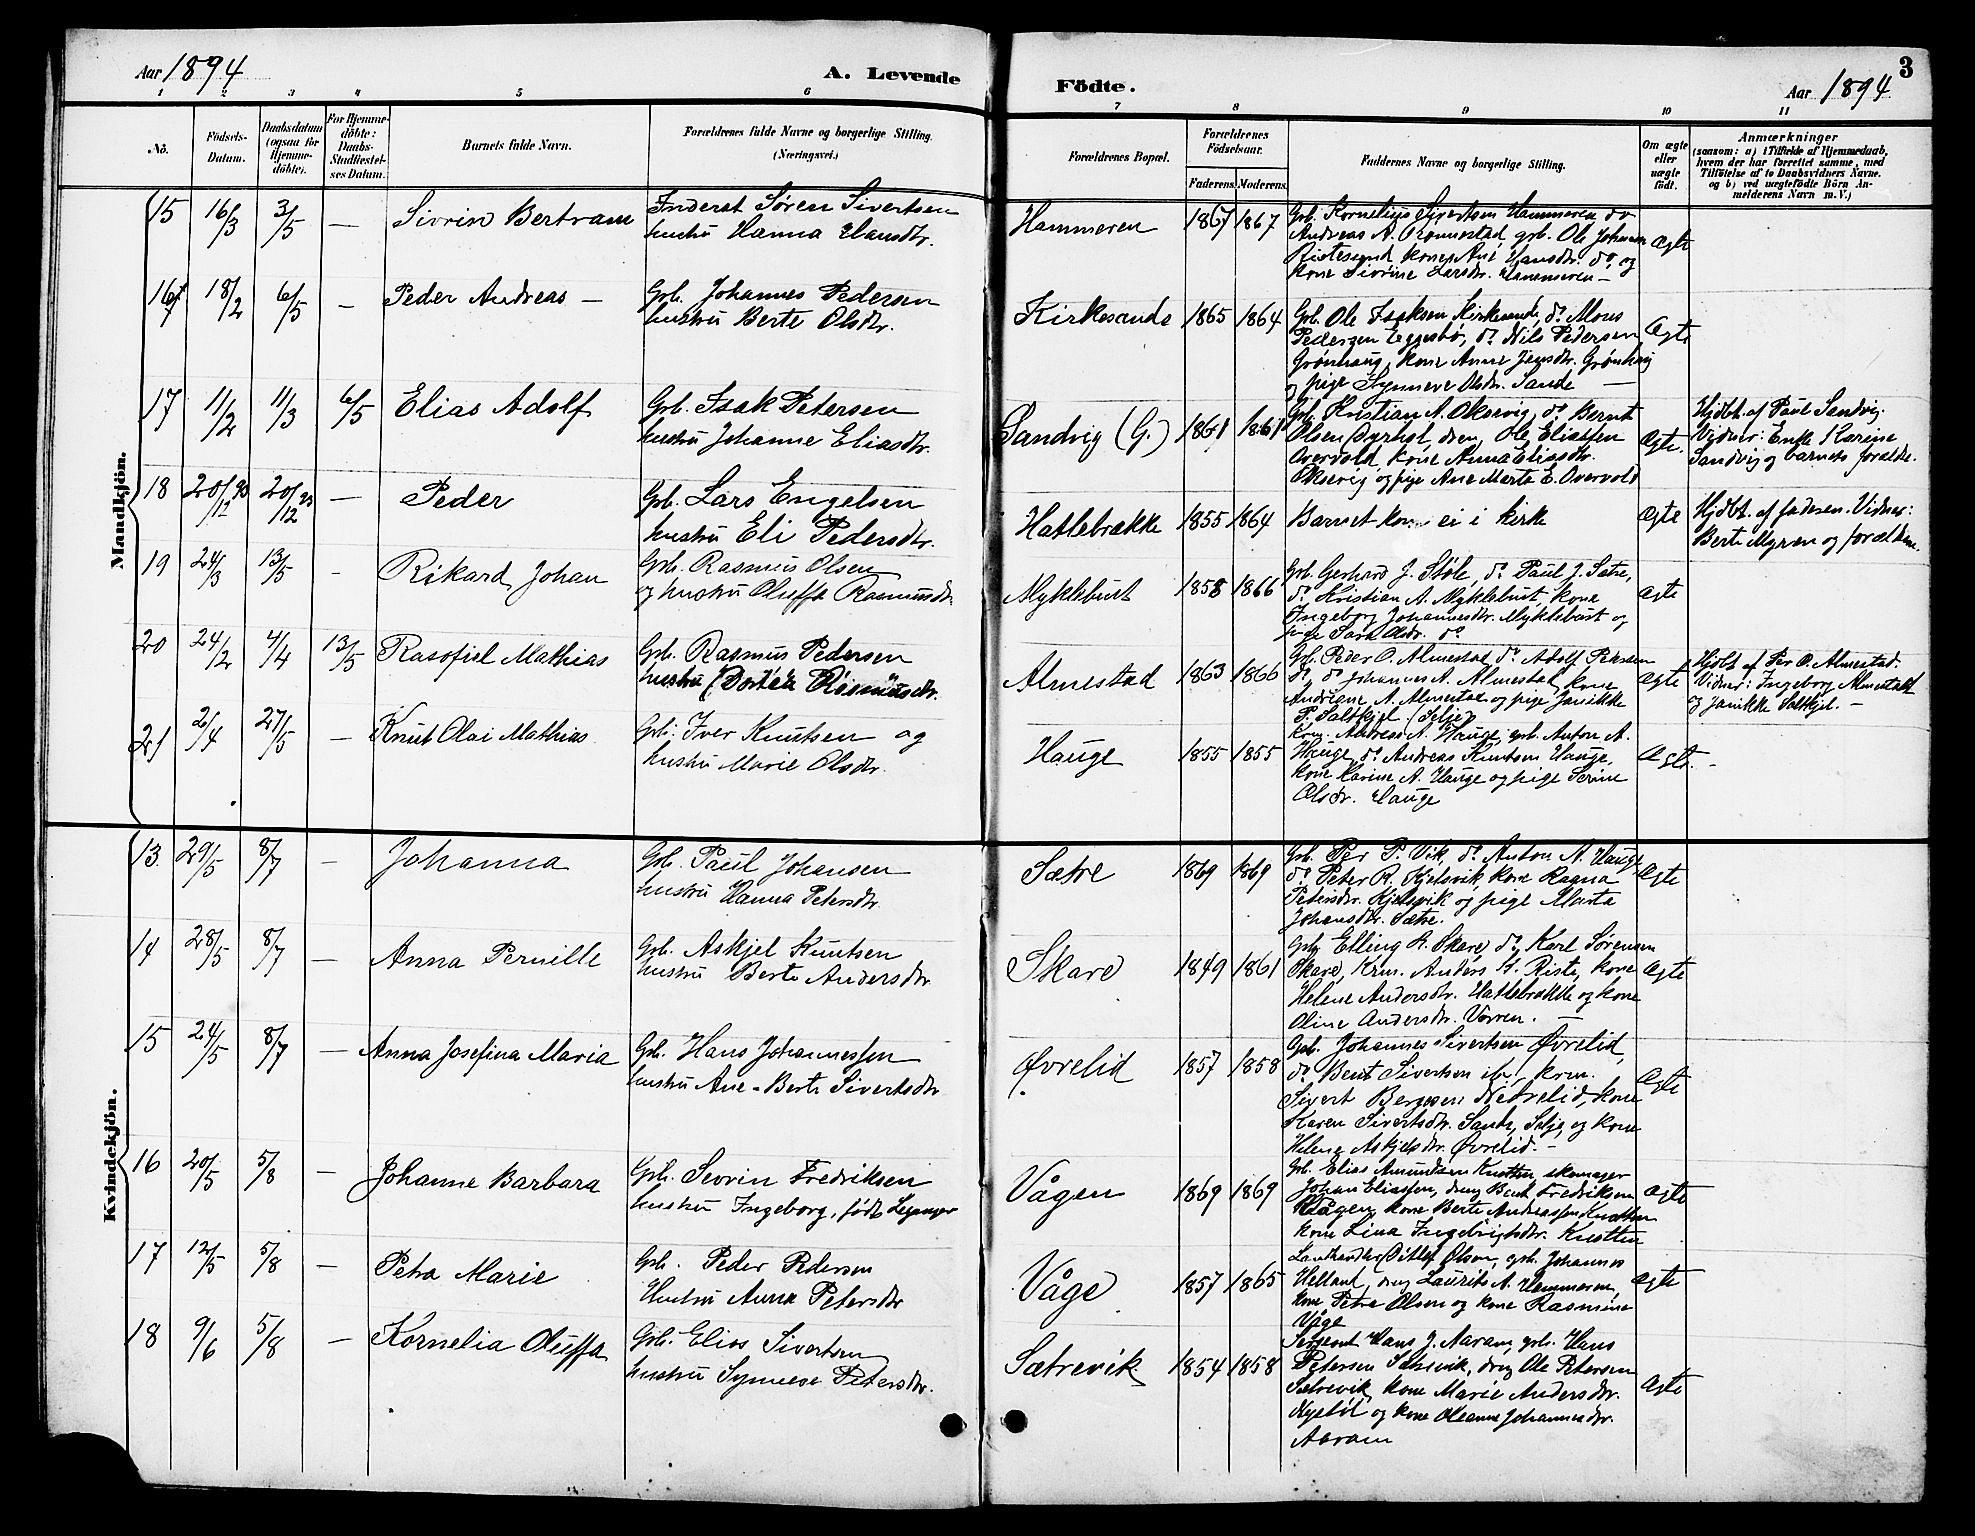 Aar 1894
A. Levende
Födte.
Aar 1894
3
1 2 3 4 5 6 7 8 9 10 11
No.
Födsels-
Datum.
Daabsdatum
(ogsaa for
Hjemme-
döbte).
For Hjemme-
döbte:
Daabs-
Stadfæstel-
ses Datum.
Barnets fulde Navn.
Forældrenes fulde Navne og borgerlige Stilling.
(Næringsvei.)
Forældrenes Bopæl.
Forældrenes
Födselsaar.
Faderens. Moderens.
Faddernes Navne og borgerlige Stilling.
Om ægte
eller
uægte
födt.
Anmærkninger
(saasom: a) i Tilfælde af Hjemmedaab,
hvem der har forrettet samme, med
Tilföielse af to Daabsvidners Navne.
og b) ved uægtefödte Börn An-
melderens Navn m. V.)
Mandkjön.
15 16/3 3/5 — Sivrin Bertram
Inderst Søren Sivertsen
hustru Hanna Hansdtr.
Hammeren 1867 1867
Grb. Kornelius Sivertsen Hammeren do
Andreas A. grb. Ole Johansen
Ristesund kone Ane Hansdtr. do og
kone Sivrine Larsdtr. Hammeren —
Ægte
16 18/2 6/5 — Peder Andreas —
Grb. Johannes Pedersen
hustru Berte Olsdtr.
Kirkesande 1865 1864
Grb. Ole Isaksen Kirkesande, do Mons
Pedersen Eggesbø, do Nils Pedersen
Grønhaug, kone Anne Jensdtr. Grønhaug
og pige Synneve Olsdtr. Sande —
Ægte
17 11/2 11/3 6/5 Elias Adolf
Grb. Isak Petersen
hustru Johanne Eliasdtr.
Sandvig (G.) 1861 1861
Grb. Kristian A. Oksevig, do Bernt
Olsen Dyrhol, dren, Ole Eliassen
Overvold, kone Anna Eliasdtr.
Oksevig, og pige Ane Merte E. Overvold
Ægte.
Hjdbt. af Paul Sandvig.
Vidner: Enke Karine
Sandvig og barnets forældre.
18 20/12 93 20/12 93 — Peder
Grb. Lars Engelsen
hustru Eli Pedersdtr.
Hatlebrække 1855 1864
Barnet kom ei i kirke
Ægte
Hjdbt. af faderen. Vidner:
Berte Myren og forældrene.
19 24/3 13/5 - Rikard Johan
Grb. Rasmus Olsen
og hustru Oluffa Rasmusdtr.
Myklebust 1858 1866
Grb. Gerhard J. Støle, do Paul J. Sætre,
do Kristian A. Myklebust, kone
Ingeborg Johannesdtr. Myklebust og
pige Sara Olsdtr. do
Ægte
20 24/2 4/4 13/5 Rasofiel Mathias
Grb. Rasmus Pedersen
hustru Dortea Rasmusdtr.
Almestad 1863 1866
Grb. Peder O. Almestad, do Adolf Petersen
do, do Johannes A. Almestad, kone
Andreane A. Almestad og pige Janikke
P. Saltkjel (Selje)
Ægte
Hjdbt af Per O. Almestad.
Vidner: Ingeborg Almestad
og Janikke Saltkjel. —
21 2/4 27/5 — Knut Olai Mathias
Grb. Iver Knutsen og
hustru Marie Olsdtr.
Hauge 1855 1855
Krm. Andreas A. Hauge, grb. Anton A.
Hauge, do Andreas Knutsen Hauge,
kone Karine A. Hauge og pige Serine
Olsdtr. Hauge
Ægte. -
Kvindekjön.
13. 29/5 8/7 — Johanna
Grb. Paul Johansen
hustru Hanna Petersdtr.
Sætre 1869 1869
Grb. Per P. Vik, do Anton A. Hauge
do Peter R. Kjelsvik, kone Ragna
Petersdtr. Kjelsvik og pige Marta
Johansdtr. Sætre.
Ægte
14 28/5 8/7 — Anna Pernille
Grb. Askjel Knutsen
hustru Berte Andersdtr.
Skare 1849 1861
Grb. Elling R. Skare, do Karl Sørensen
Skare, Krm. Anders K. Riste, kone
Helene Andersdtr. Hatlebrække og kone
Oline Andersdtr. Vorren. —
Ægte
15 24/5 8/7 — Anna Josefina Maria
Grb. Hans Johannessen
hustru Ane-Berte Sivertsdtr
Øvrelid 1857 1858
Grb. Johannes Sivertsen Øvrelid,
do Bent Sivertsen krm.
Sivert Bergesen Nedrelid, kone
Karen Sivertsdtr. Sande, Selje, og kone
Helene Askjelsdtr. Øvrelid. —
Ægte
16 20/5 5/8 — Johanne Barbara
Grb. Sevrin Fredriksen
hustru Ingeborg, født Leganger
Vågen 1869 1869
Grb. Elias Amundsen Knotten, skomager
Johan Eliassen, dreng Bent Fredriksen
Vågen, kone Berte Andreassen Knotten
kone Lina Ingebrigtsdtr. Knotten
Ægte
17 12/5 5/8 — Petra Marie
Grb. Peder Pedersen
Hustru Anna Petersdtr
Våge 1857 1865
Landhandler Ditlef Olsen, grb. Johannes
Helland, dreng Laurits A. Hammeren,
kone Petra Olsen og kone Rasmine
Våge
Ægte
18 9/6 5/8 — Kornelia Oluffa
Grb. Elias Sivertsen
hustru Synneve Petersdtr.
Sætrevik 1854 1858
Sergeant Hans J. Aaram, grb. Hans
Petersen Sætrevik, dreng Ole Petersen
Sætrevik, kone Marie Andersdtr.
Nystøl og kone Oleanne Johannesdtr.
Aaram
Ægte